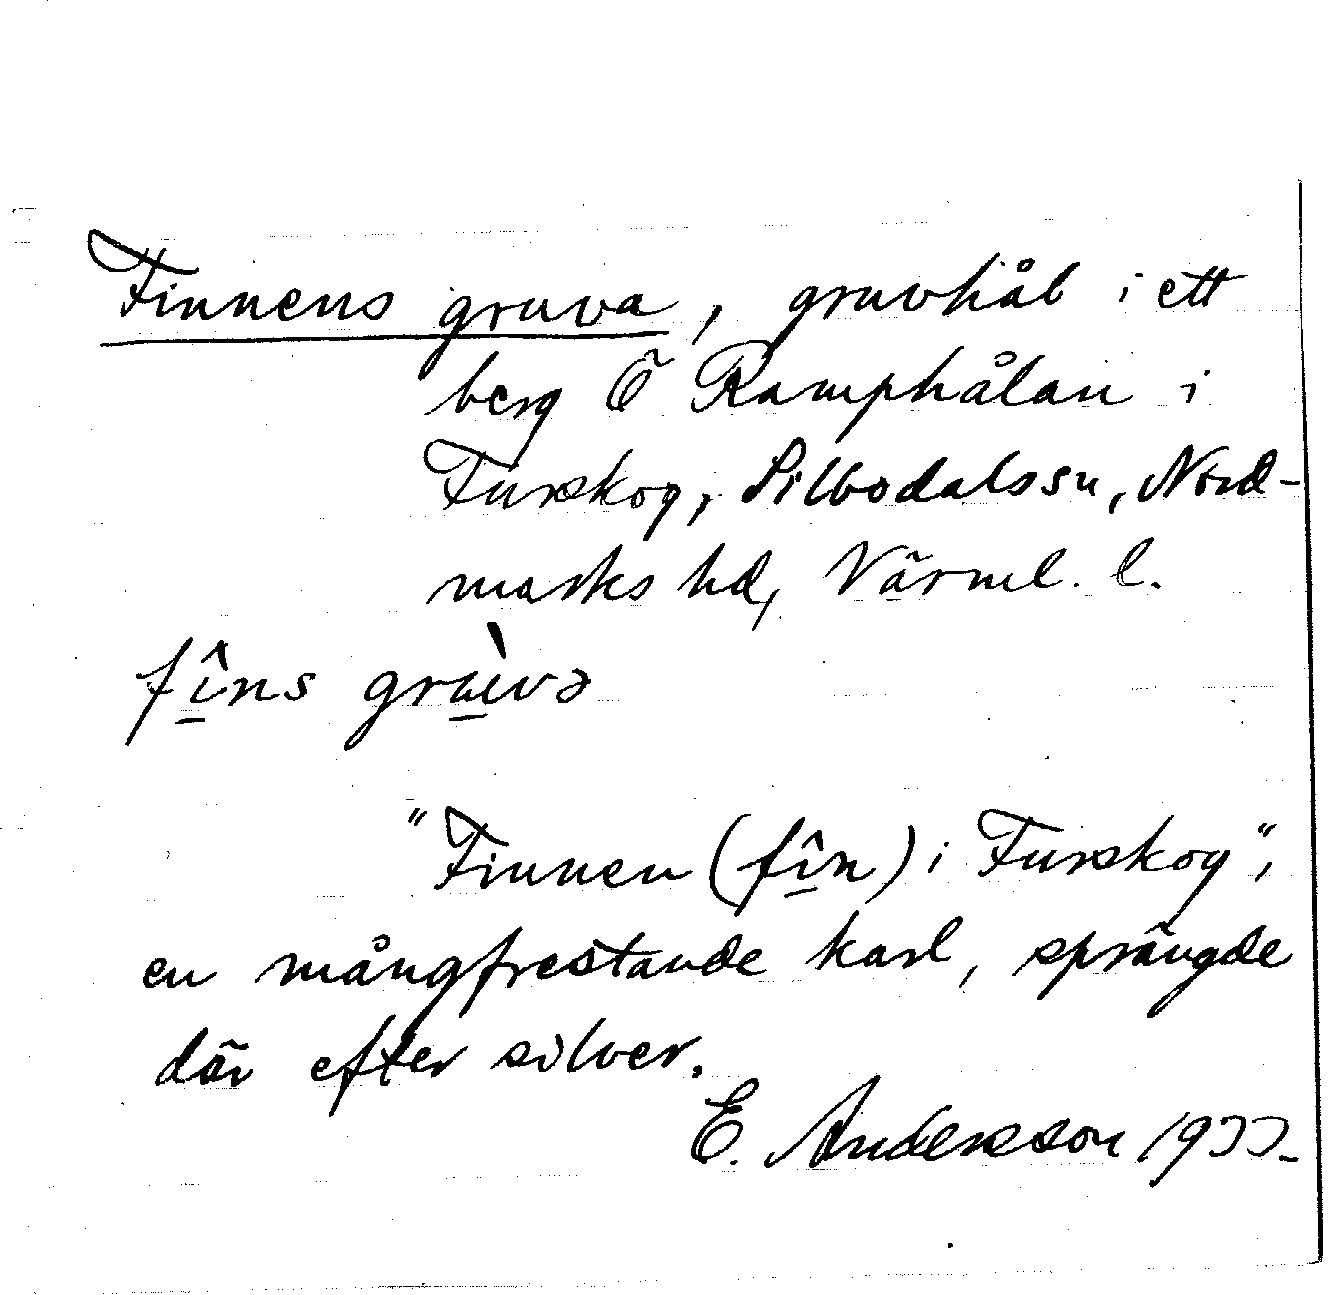 Finnens gruva, gruvhål i ett
berg Ö Ramphålan i
Furskog, Silbodals sn, Nord-
marks hd, Värml. l.
fîns gru̇̀və
"Finnen (fîn) i Furskog",
en mångfrestande karl, sprängde
där efter silver.
E. Andersson 1933.